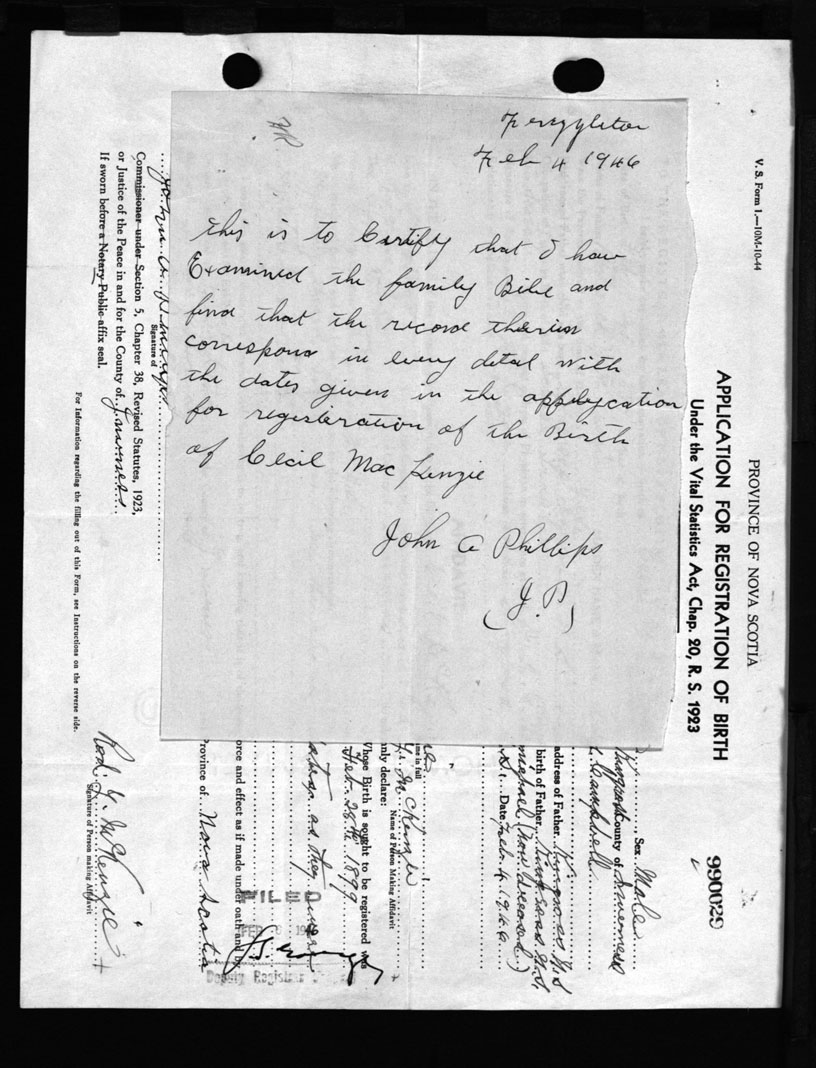 HR
Feb 4 1946
this is to Certify that I have
Examined the family Bible and
find that the record therein
correspond in every detal with
the dates given in the applycation
for regesteration of the Birth
of Cecil MacKenzie
John A Phillips
(J.P)
V. S. Form 1.—10M-10-44
PROVINCE OF NOVA SCOTIA
APPLICATION FOR REGISTRATION OF BIRTH
Under the Vital Statistics Act, Chap. 20, R. S. 1923
990029
Sex Male
County of Inverness
Campbell
address of Father Kingross N.S
birth of Father Kingross N.S.
(now deceased)
Date Feb. 4. 1946
name in full
Mc Kenzie
Name of Person Making Affidavit
nly declare:
Whose Birth is sought to be registered was
Feb. 28th 1899
as they
orce and effect as if made under oath and by
Province of Nova Scotia
FILED
FEB
Deputy Registrar
Signature of
Commissioner under Section 5, Chapter 38, Revised Statutes, 1923,
or Justice of the Peace in and for the County of Inverness
If sworn before a Notary Public affix seal.
For Information regarding the filling out of this Form, see Instructions on the reverse side.
Rod. Y. McKenzie
Signature of Person making Affidavit